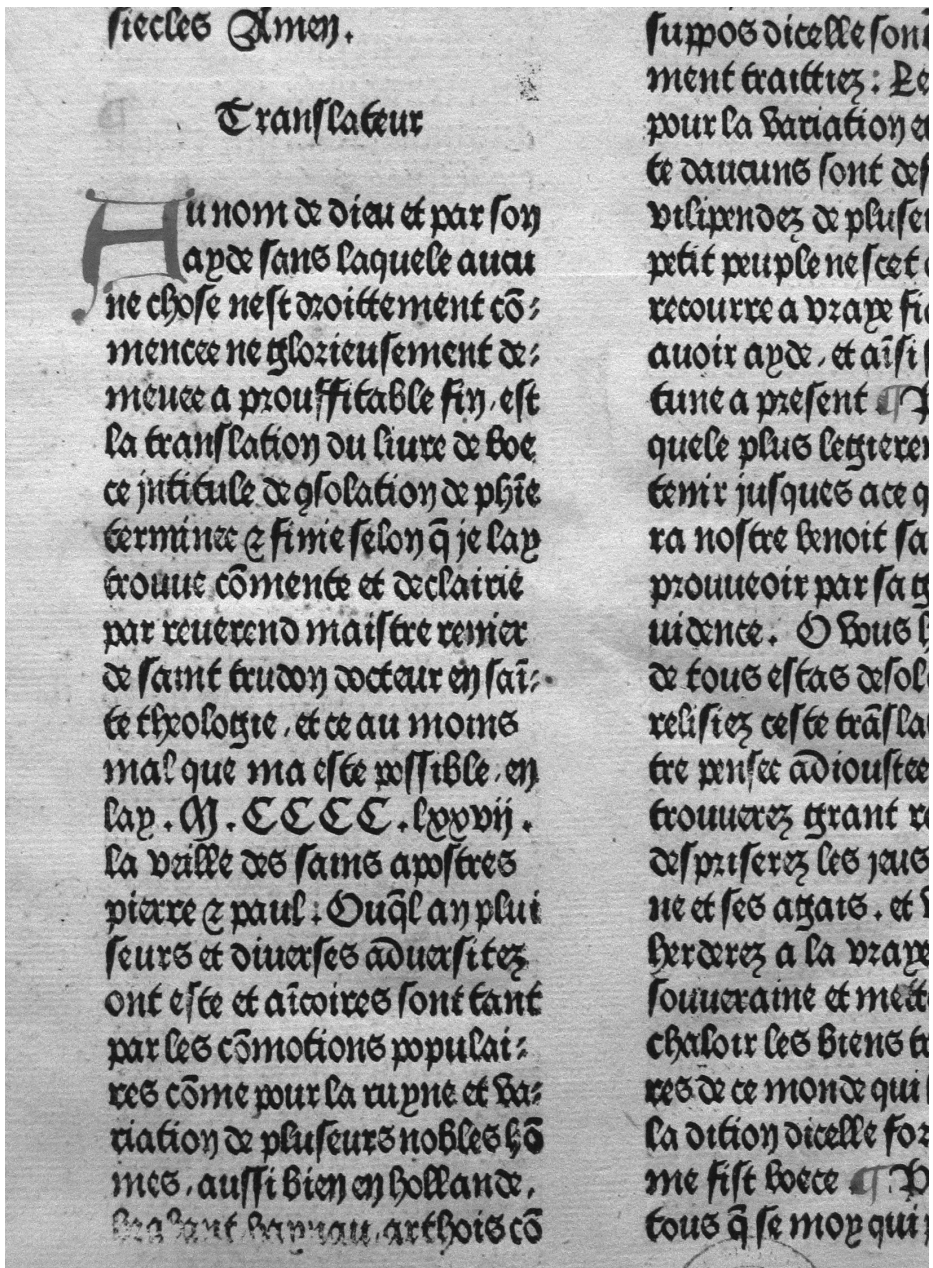 siecles Amen.
Translateur
Au nom de dieu et par son
ayde sans laquele aucu
ne chose nest droittement cō⸗
mencee ne glorieusement de⸗
menee a prouffitable fin, est
la translation du liure de boe
ce jntitule de ꝯsolation de phīe
terminee ⁊ finie selon q̄ je lay
trouue cōmente et declairie
par reuerend maistre renier
de saint trudon docteur en saī⸗
te theologie, et ce au moins
mal que ma este possible, en
lan . M . CCCC . lxxvij .
la veille des sains apostres
pierre ⁊ paul : Ouq̄l an plui
seurs et diuerses aduersitez
ont este et aīcoires sont tant
par les cōmotions populai⸗
res cōme pour la ruyne et va⸗
riation de pluseurs nobles hō
mes, aussi bien en hollande,
brabant haynau, arthois cō
suppos dicelle sont
ment traittiez : Le
pour la variation e
te daucuns sont def
vilipendez de pluseu
petit peuple ne scet
recourre a vraye fia
auoir ayde, et aīsi s
tune a present ¶ P
quele plus legierem
tenir jusques ace q
ra nostre benoit sa
prouueoir par sa g
uidence. O vous h
de tous estas desol
relisiez ceste trāsla
tre pensee adioustee
trouuerez grant re
despriserez les jeus
ne et ses agais. et v
herderez a la vraye
souueraine et mett
chaloir les biens tr
res de ce monde qui
la dition dicelle for
me fist boece ¶ P
tous q̄ se moy qui